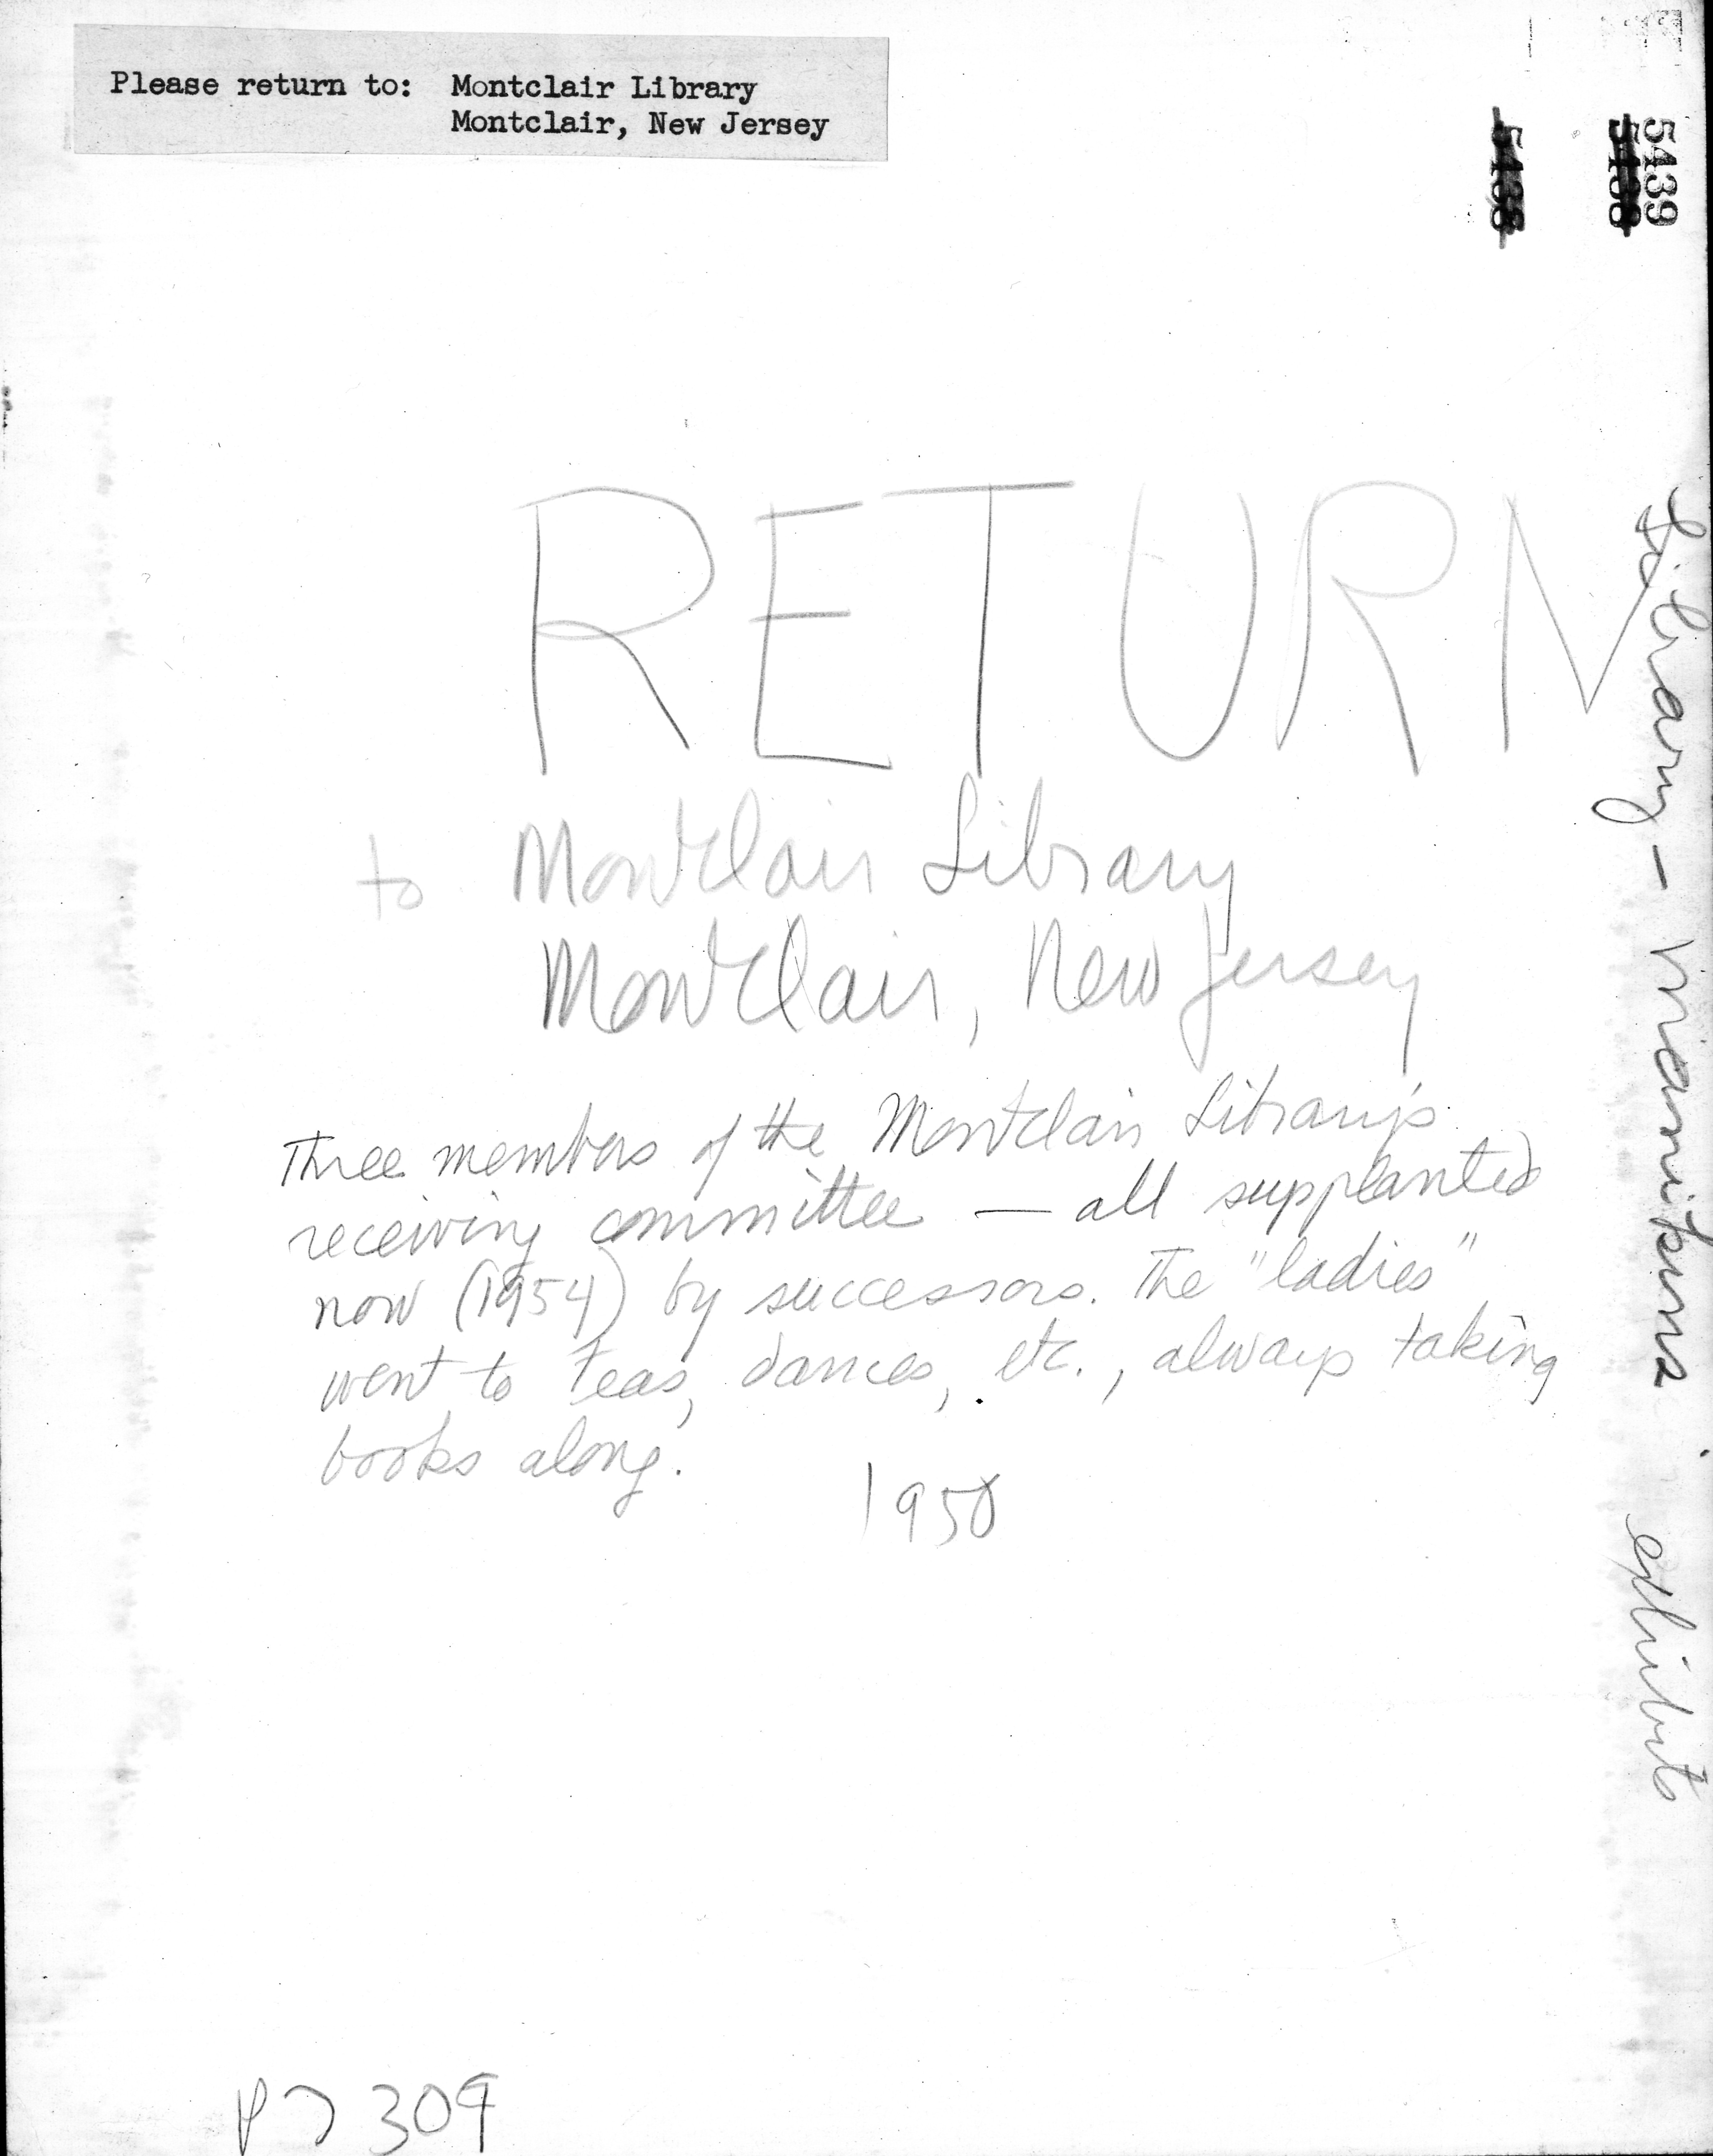 Please return to: Montclair Library
Montclair, New Jersey
5439
RETURN
to Montclair Library
Montclair, New Jersey
Three members of the Montclair Library's
receiving committee — all supplanted
now (1954) by successors. The "ladies"
went to teas, dances, etc., always taking
books along.
1950
Library - Manikins
exhibits
309